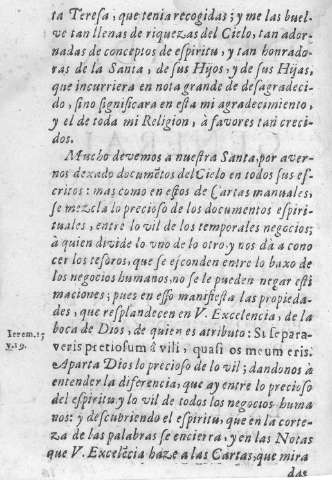 ta Teresa, que tenia recogidas; y me las buel-
ve tan llenas de riquezas del Cielo, tan ador-
nadas de conceptos de espiritu, y tan honrado-
ras de la Santa, de sus Hijos, y de sus Hijas,
que incurriera en nota grande de desagradeci-
do, sino significara en esta mi agradecimiento,
y el de toda mi Religion, à favores tan creci-
dos.
Mucho devemos a nuestra Santa, por aver-
nos dexado documẽtos del Cielo en todos sus es-
critos: mas como en estos de Cartas manuales,
se mezcla lo precioso de los documentos espiri-
tuales, entre lo vil de los temporales negocios;
à quien divide lo vno de lo otro, y nos dà a cono-
cer los tesoros, que se esconden entre lo baxo de
los negocios humanos, no se le pueden negar esti
maciones; pues en esso manifiesta las propieda-
des, que resplandecen en V. Excelencia, de la
boca de Dios, de quien es atributo: Si separa-
Ierem. 15
v. 19.
veris pretiosum â vili; quasi os meum eris.
Aparta Dios lo precioso de lo vil; dandonos à
entender la diferencia, que ay entre lo precioso
del espiritu y lo vil de todos los negocios huma
nos: y descubriendo el espiritu, que en la corte-
za de las palabras se encierra, y en las Notas
que V. Excelẽcia haze a las Cartas, que mira
das